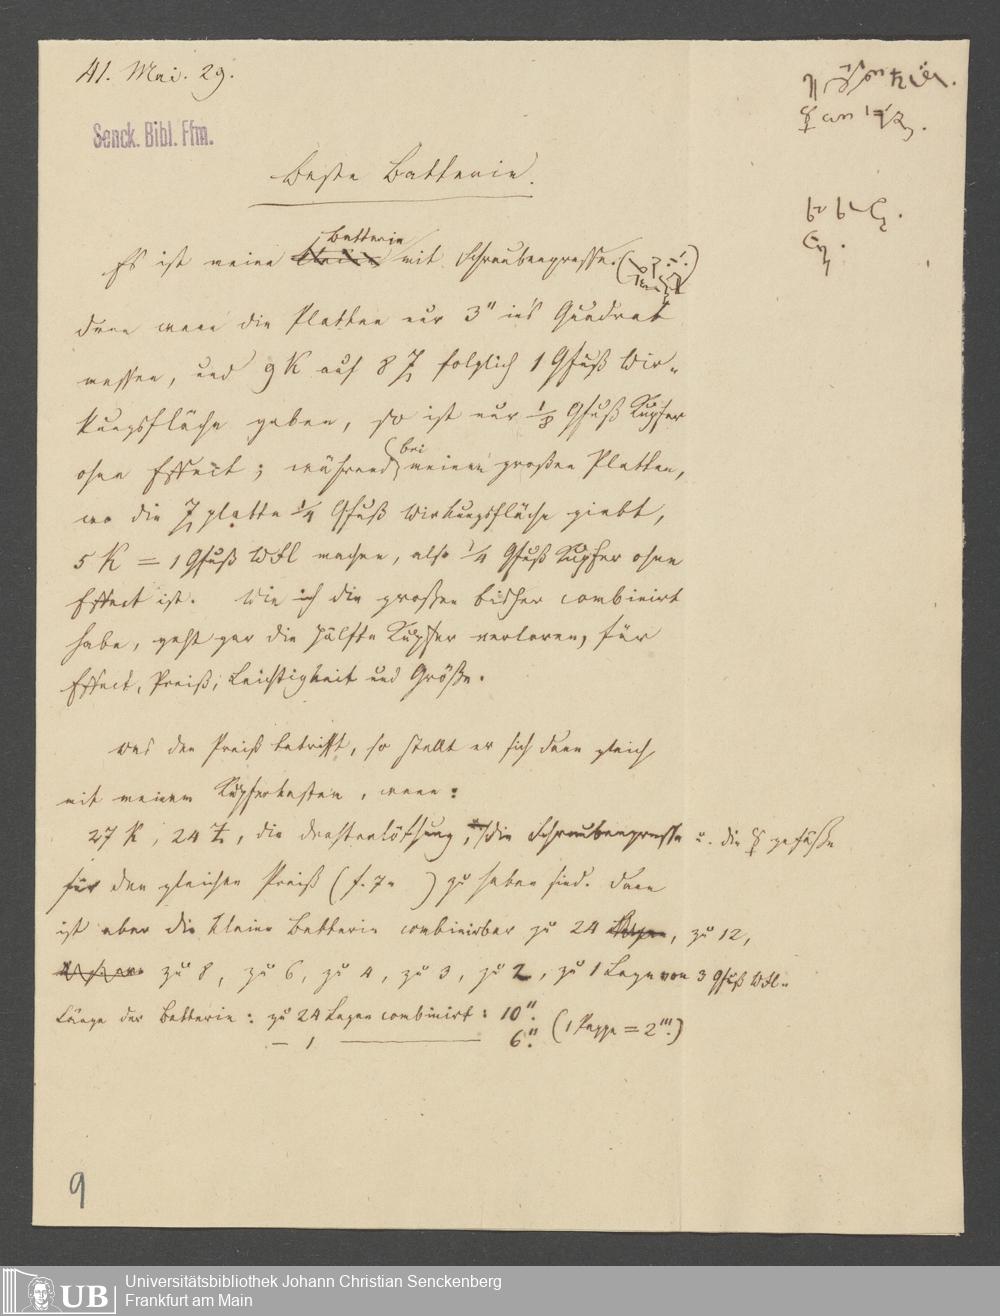 41. Mai. 29.
Senck. Bibl. Ffm.
Beste Batterie.
Batterie
Es ist meine mit Schraubenpresse.
denn wenn die Platten nur 3" in's Quadrat
messen, und 9 K auf 8 Z folglich 1 Qfuß Wir-
kungsfläche geben, so ist nur 1/8 Qfuß Kupfer
ohne Effect; während bei meinen großen Platten,
wo die Zplatte 1/4 Qfuß Wirkungsfläche giebt,
5 K = 1 Qfuß WFl machen, also 1/4 Qfuß Kupfer ohne
Effect ist. Wie ich die großen bisher combinirt
habe, geht gar die Hälfte Kupfer verloren, für
Effect, Preiß, Leichtigkeit und Größe.
Was den Preiß betrifft, so stellt er sich dann gleich
mit meinem Kupferkasten, wenn:
27 K, 24 Z, die Drahtenlöthung, die Schraubenpresse u. die gefäße
für den gleichen Preiß (f. 7 ) zu haben sind. Dann
ist aber die kleine Batterie combinirbar zu 24, zu 12,
zu 8, zu 6, zu 4, zu 3, zu 2, zu 1 Lage von 3 Qfuß WFl.
Länge der Batterie: zu 24 Lagen combinirt: 10".
— 1 — 6". (1 Pappe = 2"'.)
9
UB
Universitätsbibliothek Johann Christian Senckenberg
Frankfurt am Main